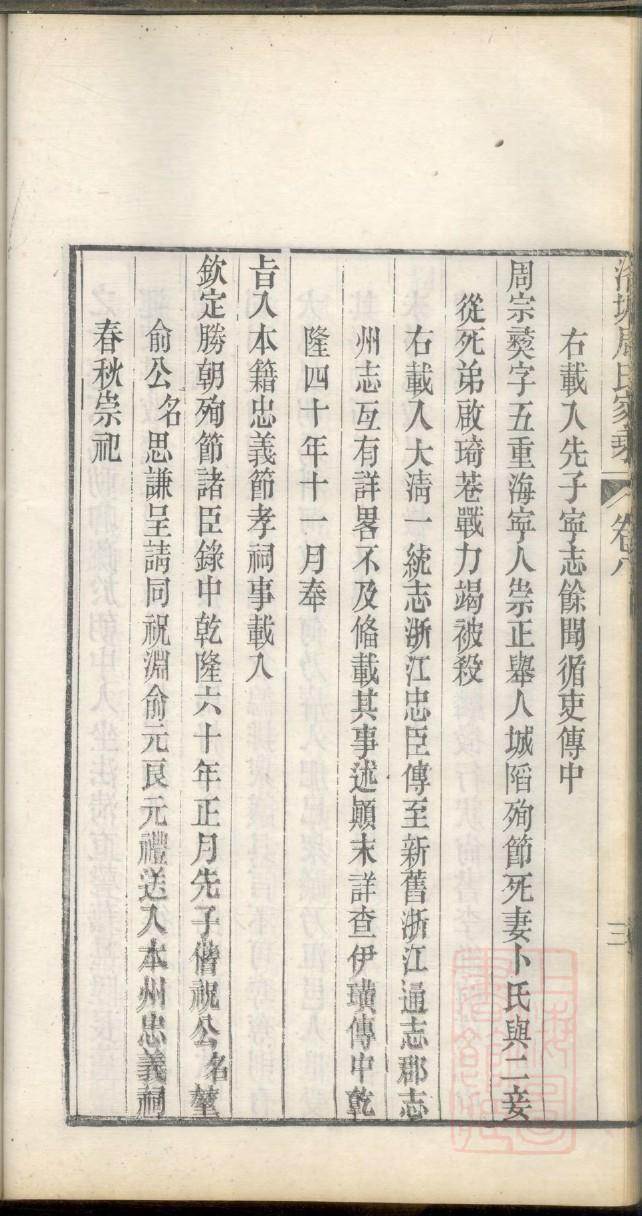 洛塘周氏家乘 卷八 三
右載入先子寧志餘聞循吏傳中
周宗彝字五重海寧人崇正舉人城陷殉節死妻卜氏與二妾
從死弟啟琦巷戰力竭被殺
右載入大清一統志浙江忠臣傳至新舊浙江通志郡志
州志互有詳畧不及偹載其事述顚末詳查伊璜傳中乾
隆四十年十一月奉
旨入本籍忠義節孝祠事載入
欽定勝朝殉節諸臣錄中乾隆六十年正月先子偕祝公名
俞公名思謙呈請同祝淵俞元良元禮送入本州忠義祠
春秋崇祀